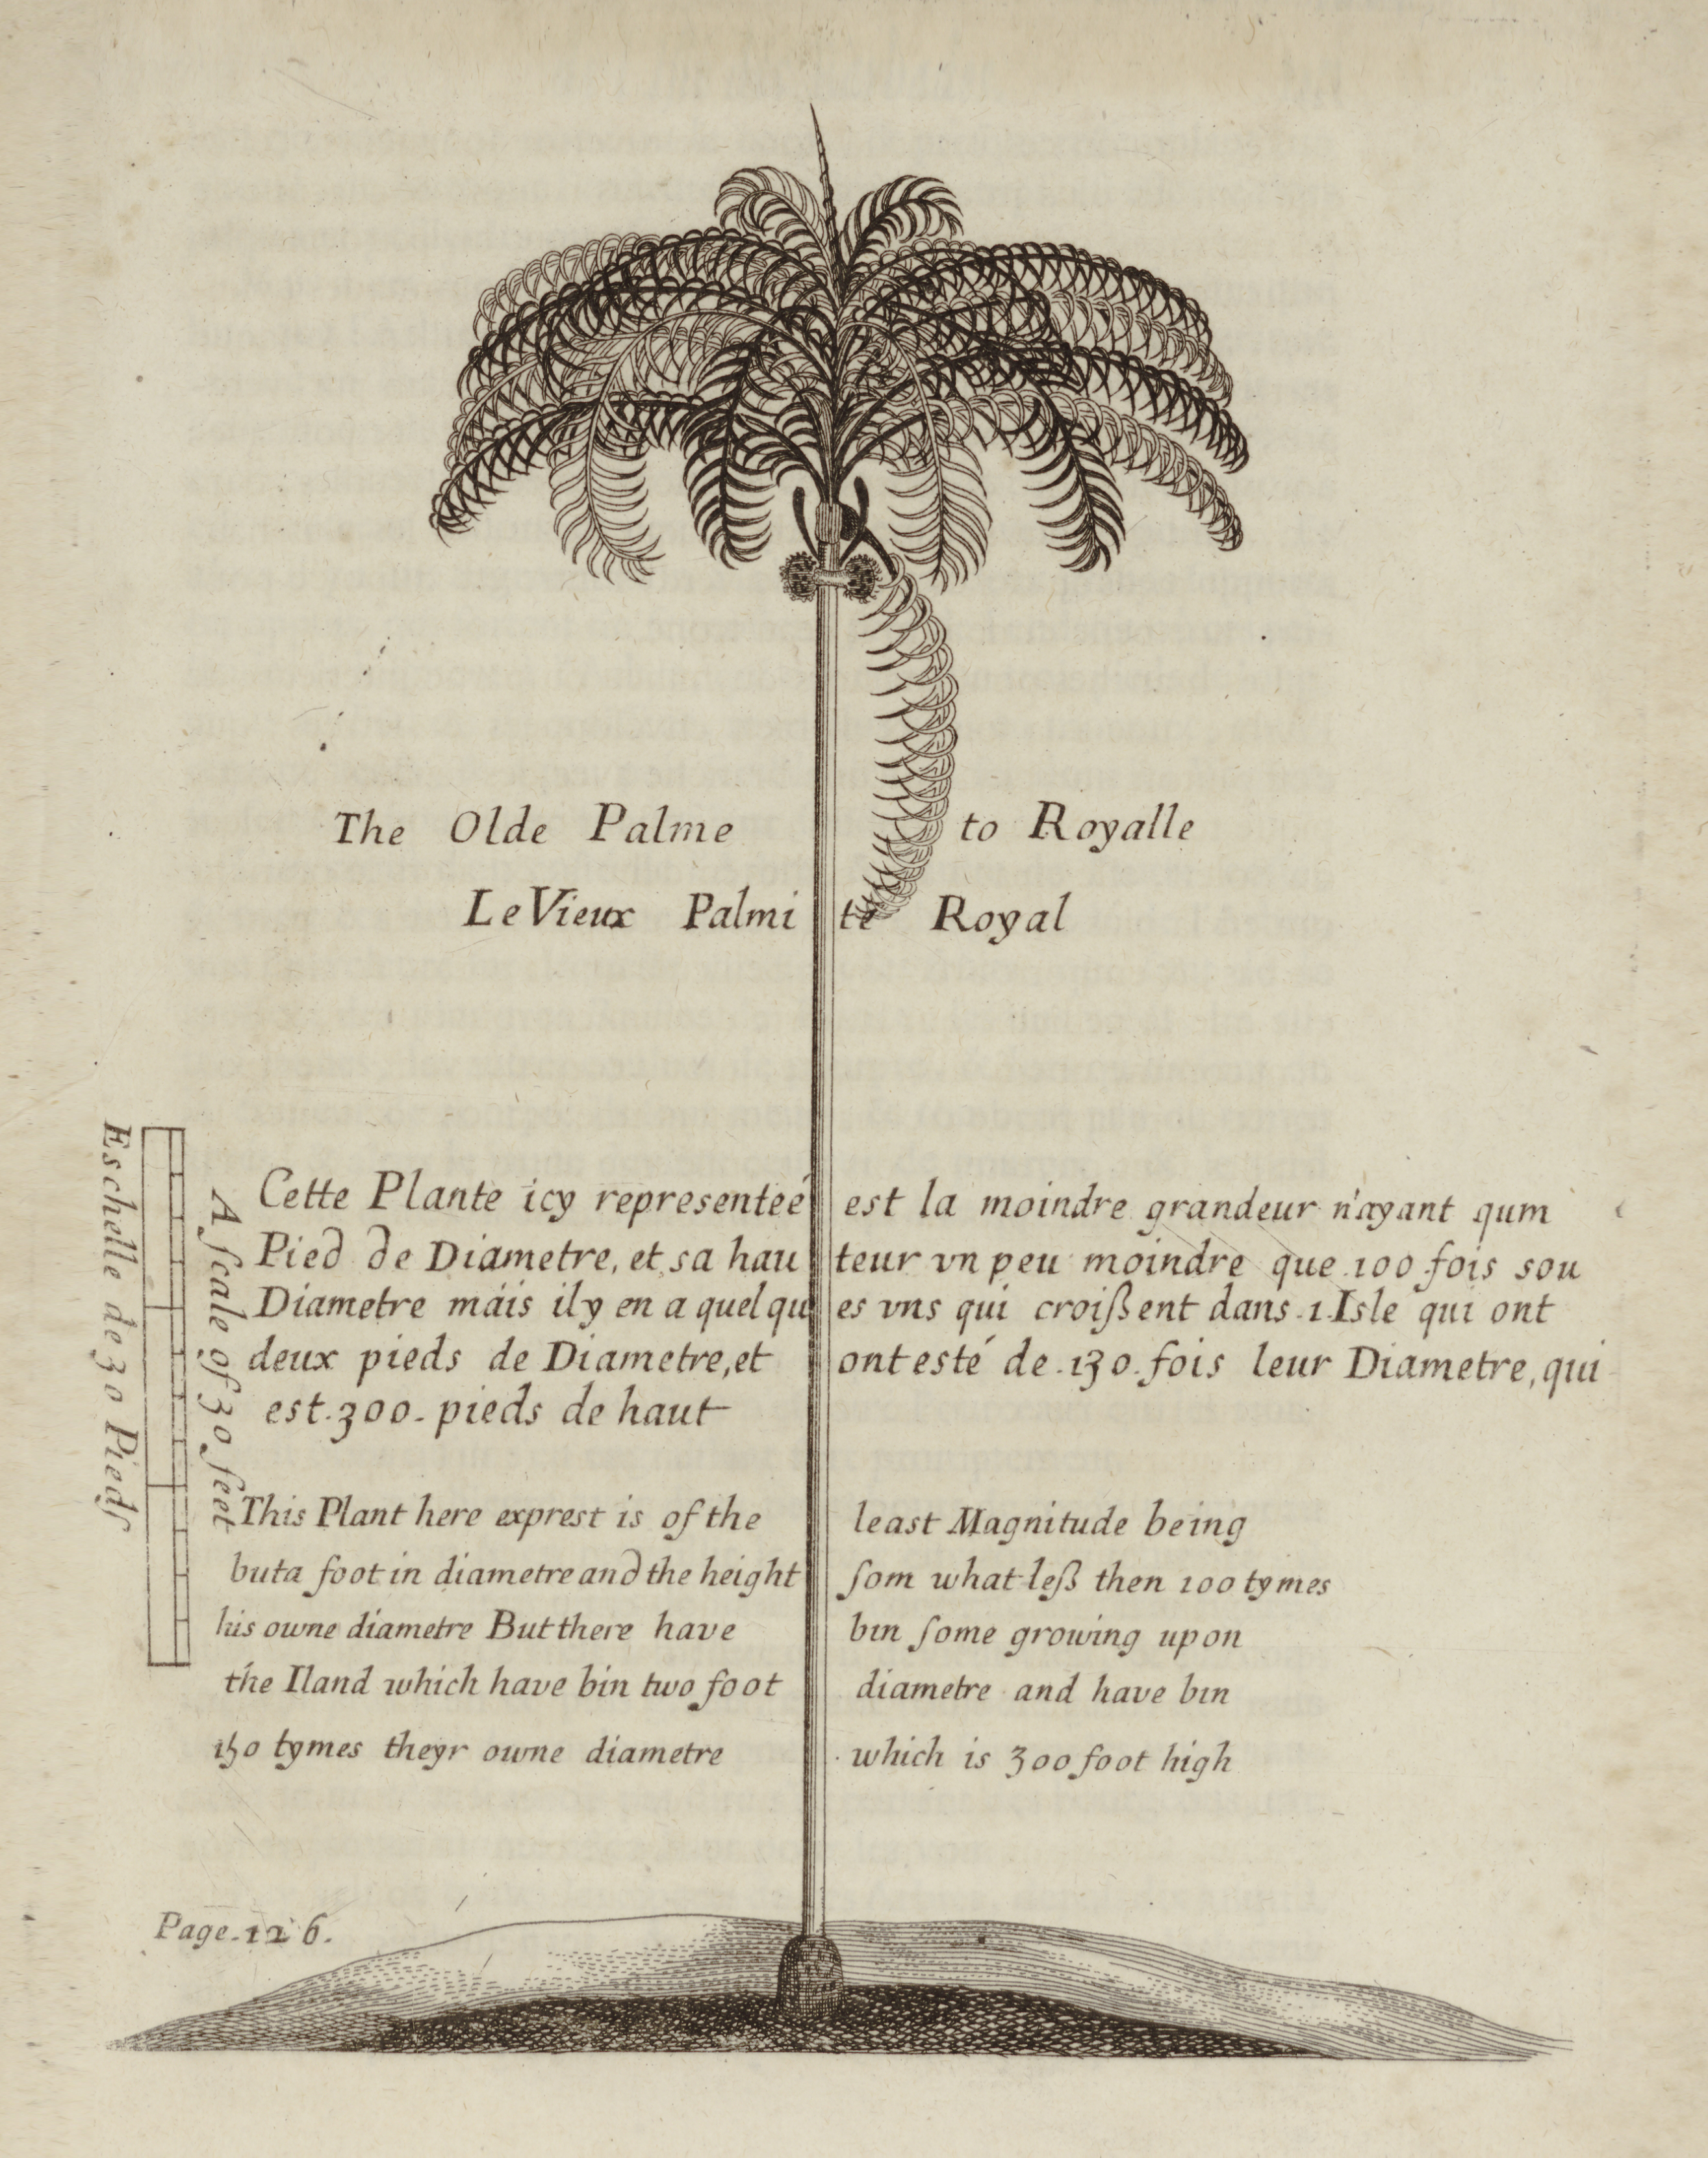 The Olde Palme to Royalle
Le Vieux Palmi te Royal
Eschelle de 30 Pieds
A ſcale of 30 feet
Cette Plante icy representeé est la moindre grandeur n'ayant qum
Pied de Diametre, et sa hau teur vn peu moindre que 100 fois sou
Diametre mais il y en a quel qu es vns qui croißent dans 1 Isle qui ont
deux pieds de Diametre, et ont esté de .130. fois leur Diametre, qui
est .300. pieds de haut
This Plant here exprest is of the least Magnitude being
but a foot in diametre and the height ſom what leß then 100 tymes
his owne diametre But there have bin ſome growing upon
the Iland which have bin two foot diametre and have bin
150 tymes theyr owne diametre which is 300 foot high
Page. 126.